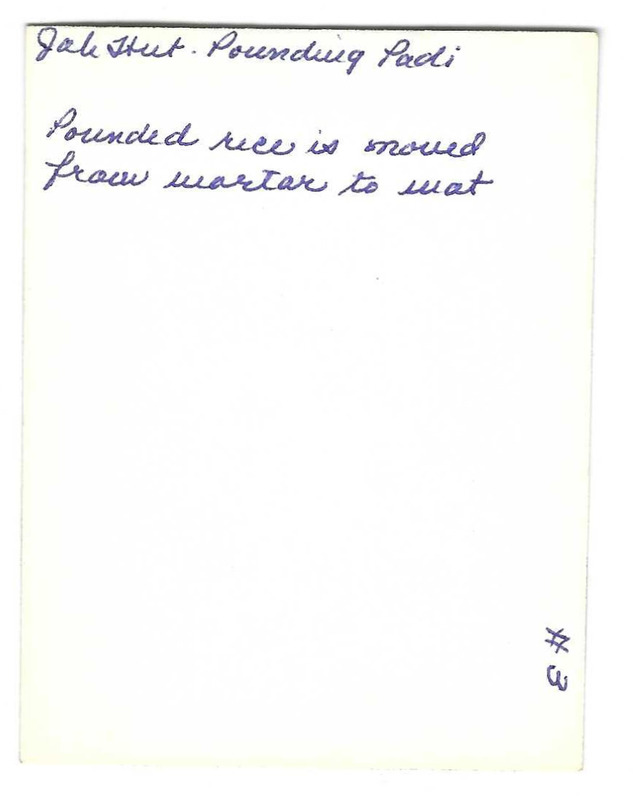 Jah Hut. Pounding Padi
Pounded rice is moved
from mortar to mat
#3